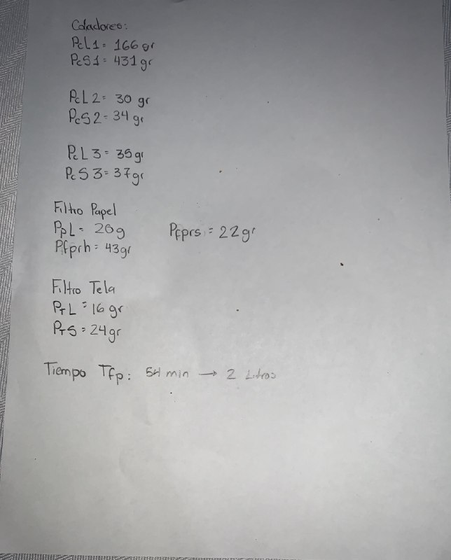 Coladores:
PcL1= 166 gr
PcS1= 431 gr
PcL2= 30 gr
PcS2= 34 gr
PcL3= 35 gr
PcS3= 37 gr
Filtro Papel
PpL= 20g Pfprs = 22gr
Pfprh= 43gr
Filtro Tela
PTL= 16 gr
PTS= 24 gr
Tiempo Tfp: 54 min → 2 Litros